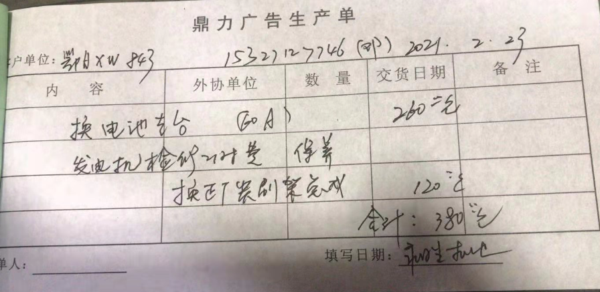 鼎力广告生产单
户单位：鄂AXW843 15327127746（邓） 2021. 2. 23
内 容 外协单位 数 量 交货日期 备 注
换电池壹台 (60A) 260元
发电机检修 费 保养
换 碳刷架完成 120元
合计：380元
单人： 填写日期：